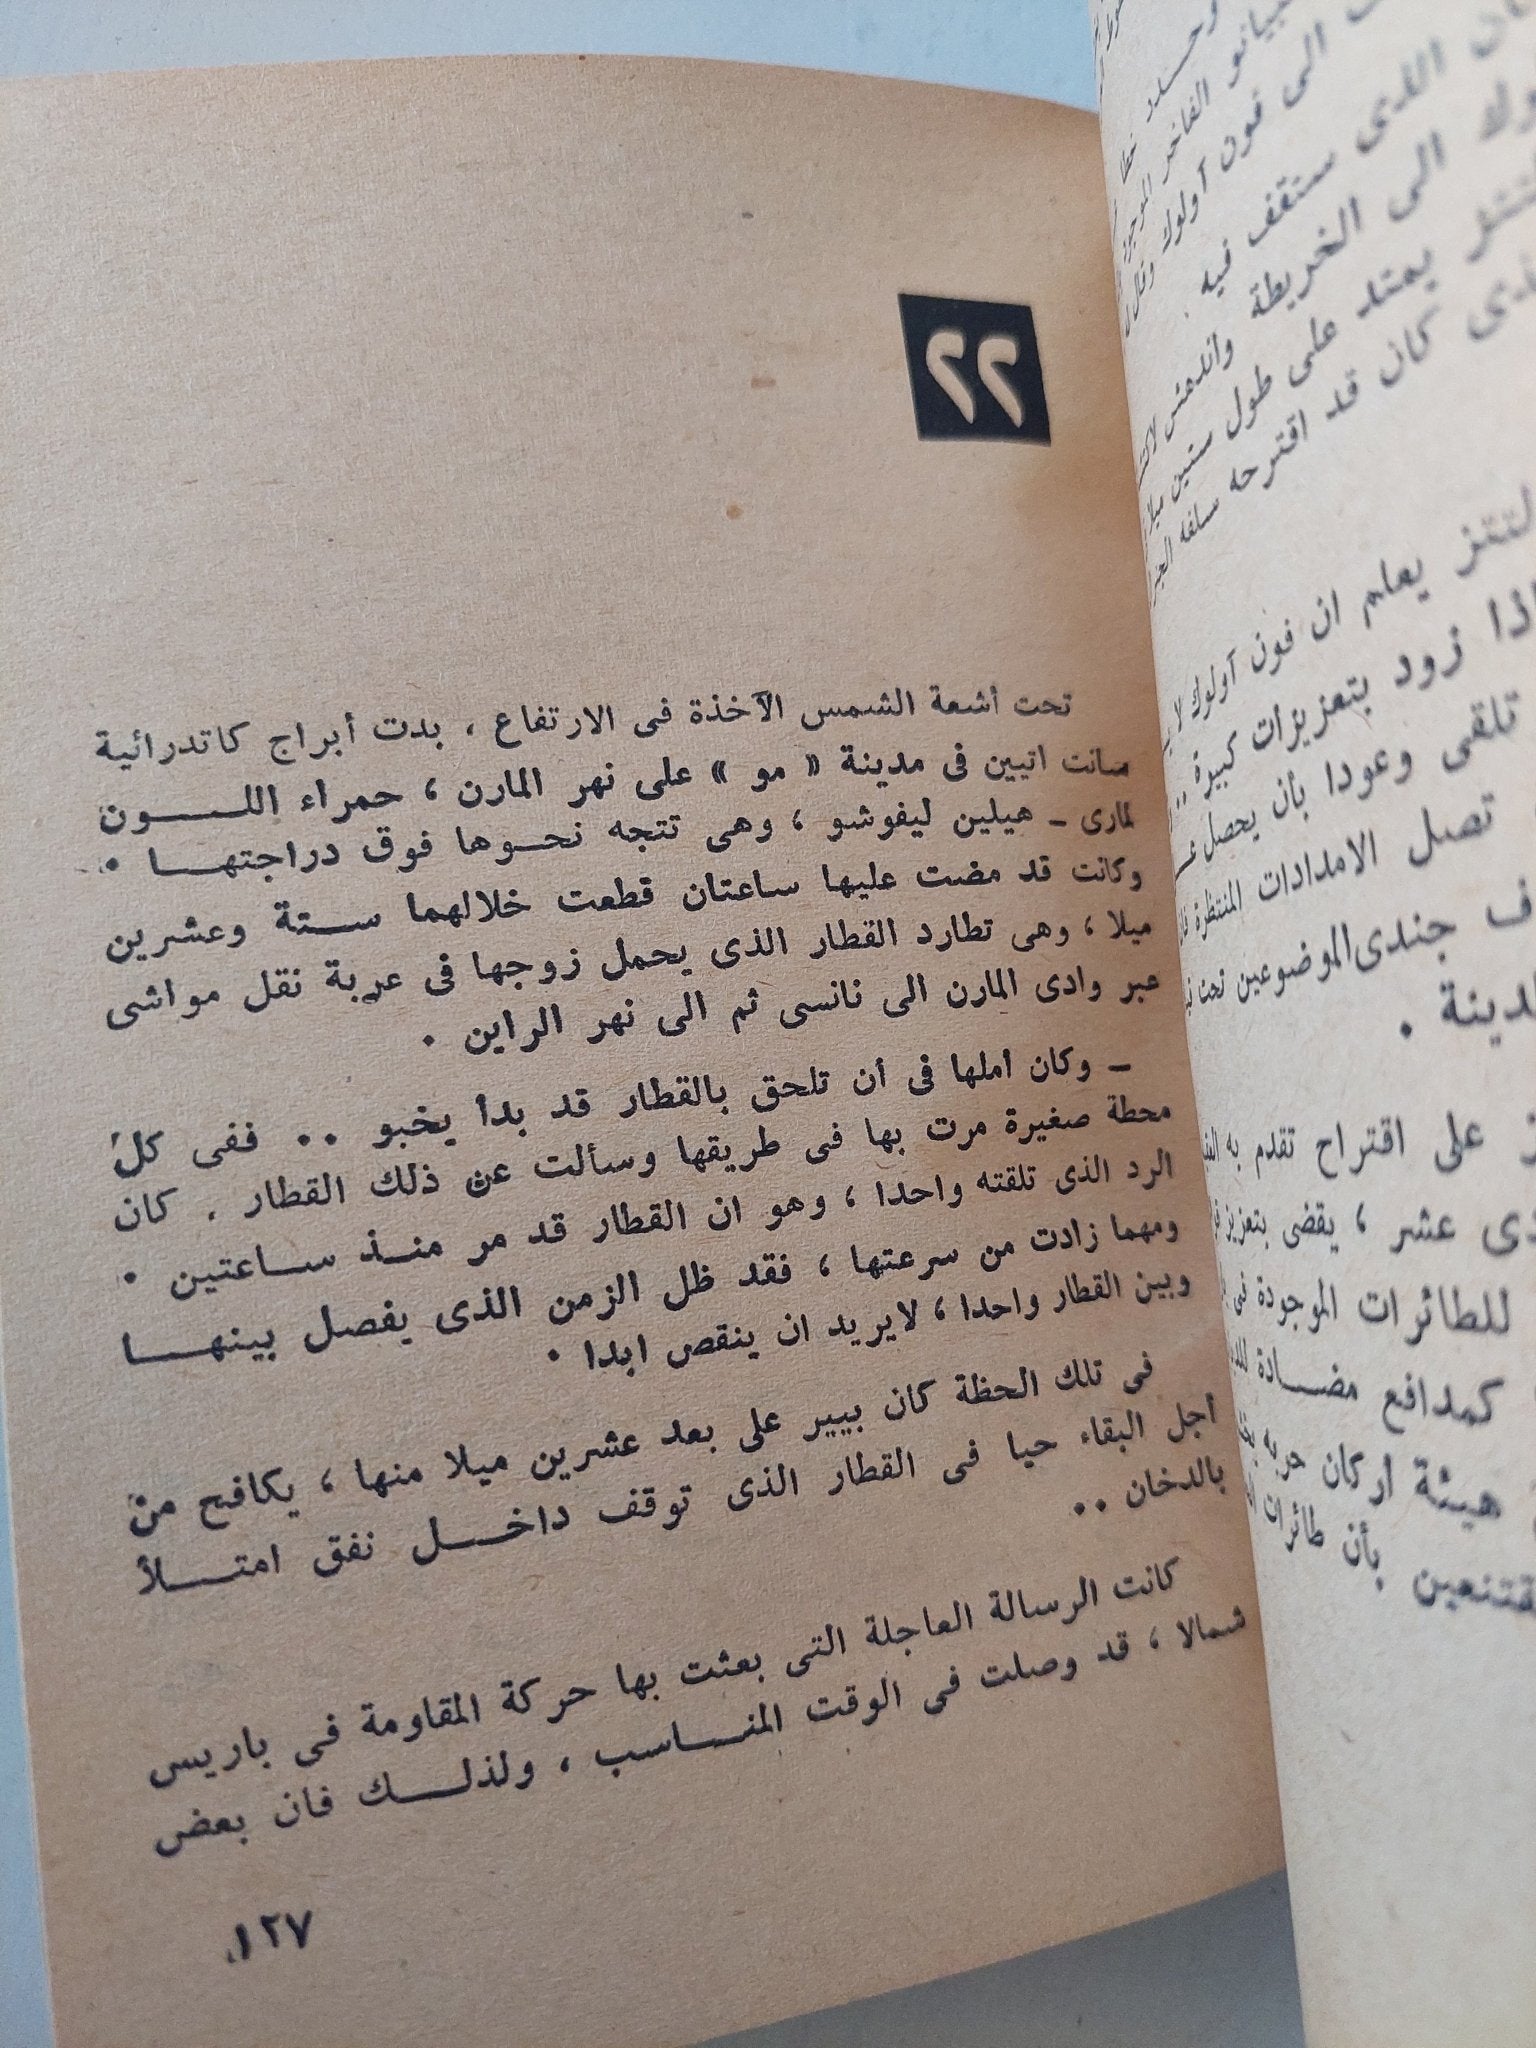 ٢٢
تحت أشعة الشمس الآخذة فى الارتفاع ، بدت أبراج كاتدرائية
سانت اتيين فى مدينة « مو » على نهر المارن ، حمراء اللـــون
لمارى ـ هيلين ليفوشو ، وهى تتجه نحـوها فوق دراجتهـــا .
وكانت قد مضت عليها ساعتان قطعت خلالهما ستـة وعشرين
ميلا ، وهى تطارد القطار الذى يحمل زوجها فى عربة نقل مواشى
عبر وادى المارن الى نانسى ثم الى نهر الراين .
ـ وكان املها فى أن تلحق بالقطار قد بدأ يخبو .. ففى كل
محطة صغيرة مرت بها فى طريقها وسألت عن ذلك القطار . كان
الرد الذى تلقته واحدا ، وهو ان القطار قد مر منـذ ساعتين .
ومهما زادت من سرعتها ، فقد ظل الزمن الذى يفصل بينهـــا
وبين القطار واحدا ، لايريد ان ينقص ابدا .
فى تلك الحظة كان بيير على بعد عشرين ميلا منها ، يكافح من
أجل البقاء حيا فى القطار الذى توقف داخـل نفق امتـــلأ
بالدخان ..
كانت الرسالة العاجلة التى بعثت بها حركة المقاومة فى باريس
شمالا ، قد وصلت فى الوقت المنـاسب ، ولذلـك فان بعض
١٢٧
الى فون آولوك وقال
الذى ستقف فيه .
الى الخريطة واندهش
يمتد على طول ستين
كان قد اقترحه سلفه
يعلم ان فون آولوك
زود بتعزيزات كبيرة ..
تلقى وعودا بأن يحصل
تصل الامدادات المنتظرة
جندى الموضوعين تحت
على اقتراح تقدم به
عشر ، يقضى بتعزيز
للطائرات الموجودة فى
كمدافع مضـادة
هيئة أركان حربه
بأن طائرات